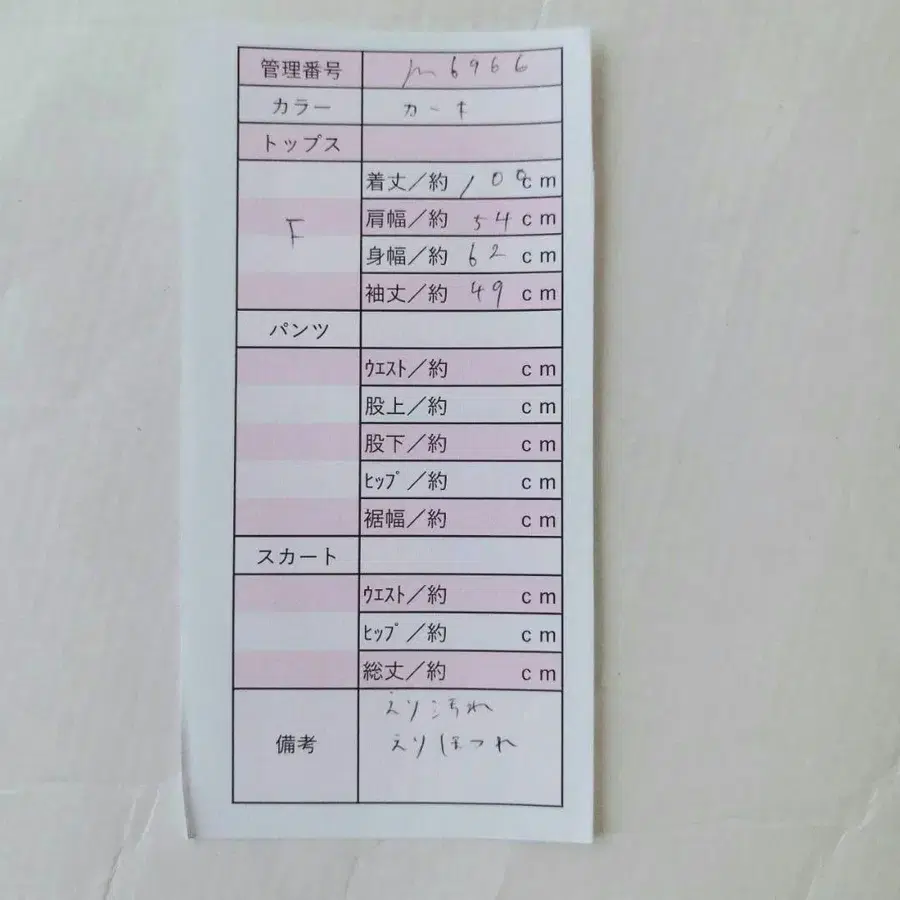 管理番号 m6966
カラー カーキ
トップス
F
着丈／約 100cm
肩幅／約 54cm
身幅／約 62cm
袖丈／約 49cm
パンツ
ｳｴｽﾄ／約 cm
股上／約 cm
股下／約 cm
ﾋｯﾌﾟ／約 cm
裾幅／約 cm
スカート
ｳｴｽﾄ／約 cm
ﾋｯﾌﾟ／約 cm
総丈／約 cm
備考
えり汚れ
えりほつれ